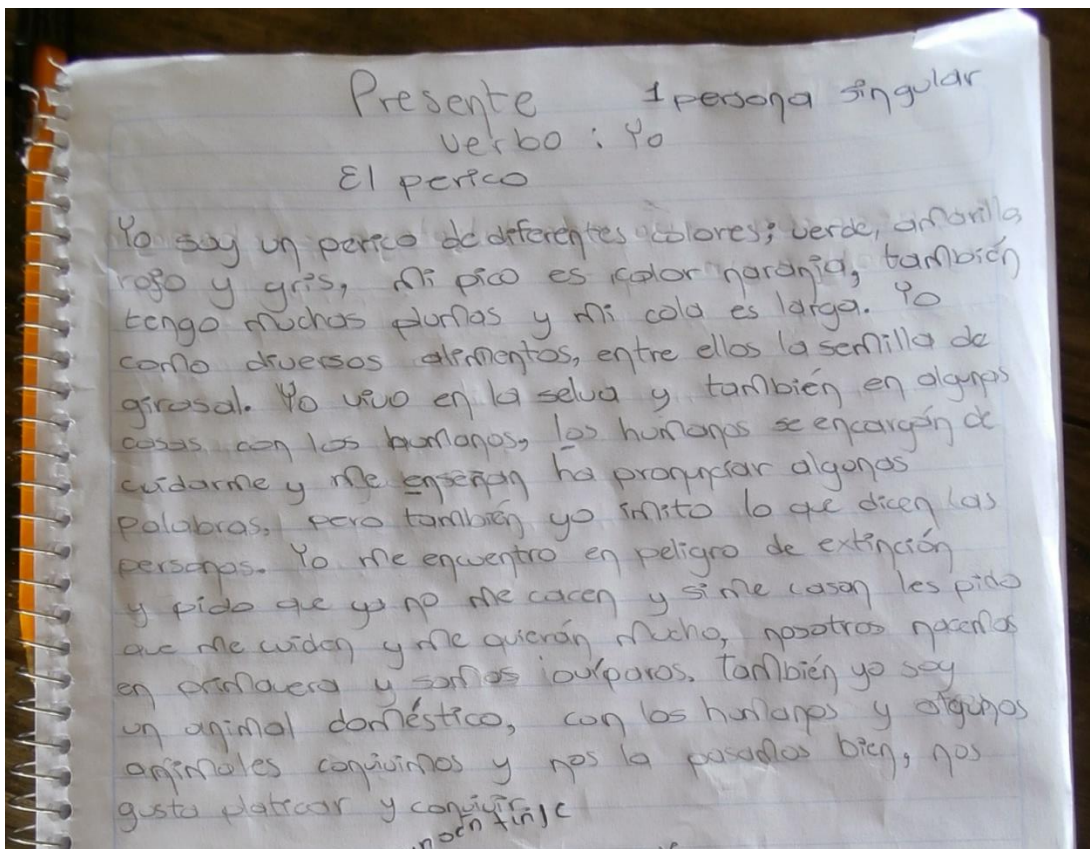 Presente 1 persona singular
verbo : Yo
El perico
Yo soy un perico de diferentes colores; verde, amarillo,
rojo y gris, mi pico es color naranja, también
tengo muchas plumas y mi cola es larga. Yo
como diversos alimentos, entre ellos la semilla de
girasal. Yo vivo en la selva y también en algunas
casas con los humanos, los humanos se encargán de
cuidarme y me enseñan ha pronunciar algonas
palabras, pero también yo imito lo que dicen las
personas. Yo me encuentro en peligro de extinción
y pido que ya no me cacen y si me casan les pido
que me cuiden y me quierán mucho, nosotros nacemos
en primavera y somos ovíparos. también yo soy
un animal doméstico, con los humanos y algunos
animales convivimos y nos la pasamos bien, nos
gusta platicar y convivir